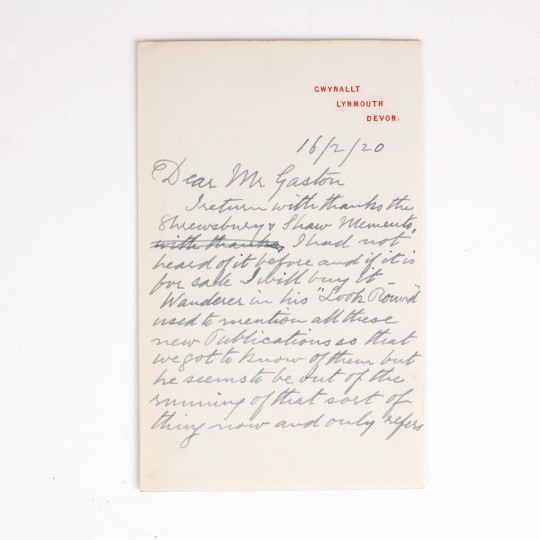 GWYNALLT
LYNMOUTH
DEVON.
16/2/20
Dear Mr Gaston
I return with thanks the
Shrewsbury & Shaw Memento,
with thanks, I had not
heard of it before and if it is
for sale I will buy it –
Wanderer in his "Look Round"
used to mention all these
new Publications so that
we got to know of them but
he seems to be out of the
running of that sort of
thing now and only refers